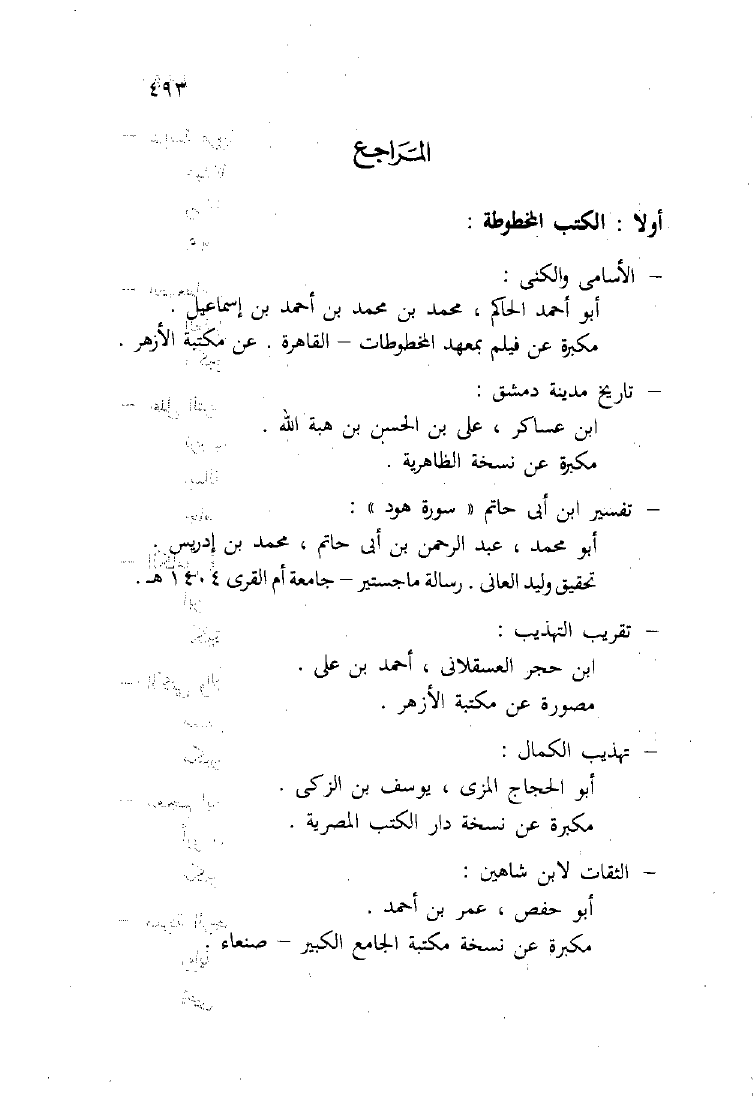 ٤٩٣
المَرَاجع
أولا : الكتب المخطوطة :
– الأسامى والكنى :
أبو أحمد الحاكم ، محمد بن محمد بن أحمد بن إسماعيل .
مكبرة عن فيلم بمعهد المخطوطات – القاهرة . عن مكتبة الأزهر .
– تاريخ مدينة دمشق :
ابن عساكر ، على بن الحسن بن هبة الله .
مكبرة عن نسخة الظاهرية .
– تفسير ابن أبى حاتم « سورة هود » :
أبو محمد ، عبد الرحمن بن أبى حاتم ، محمد بن إدريس .
تحقيق وليد العانى . رسالة ماجستير – جامعة أم القرى ١٤٠٤ هـ .
– تقريب التهذيب :
ابن حجر العسقلانى ، أحمد بن على .
مصورة عن مكتبة الأزهر .
– تهذيب الكمال :
أبو الحجاج المزى ، يوسف بن الزكى .
مكبرة عن نسخة دار الكتب المصرية .
– الثقات لابن شاهين :
أبو حفص ، عمر بن أحمد .
مكبرة عن نسخة مكتبة الجامع الكبير – صنعاء .